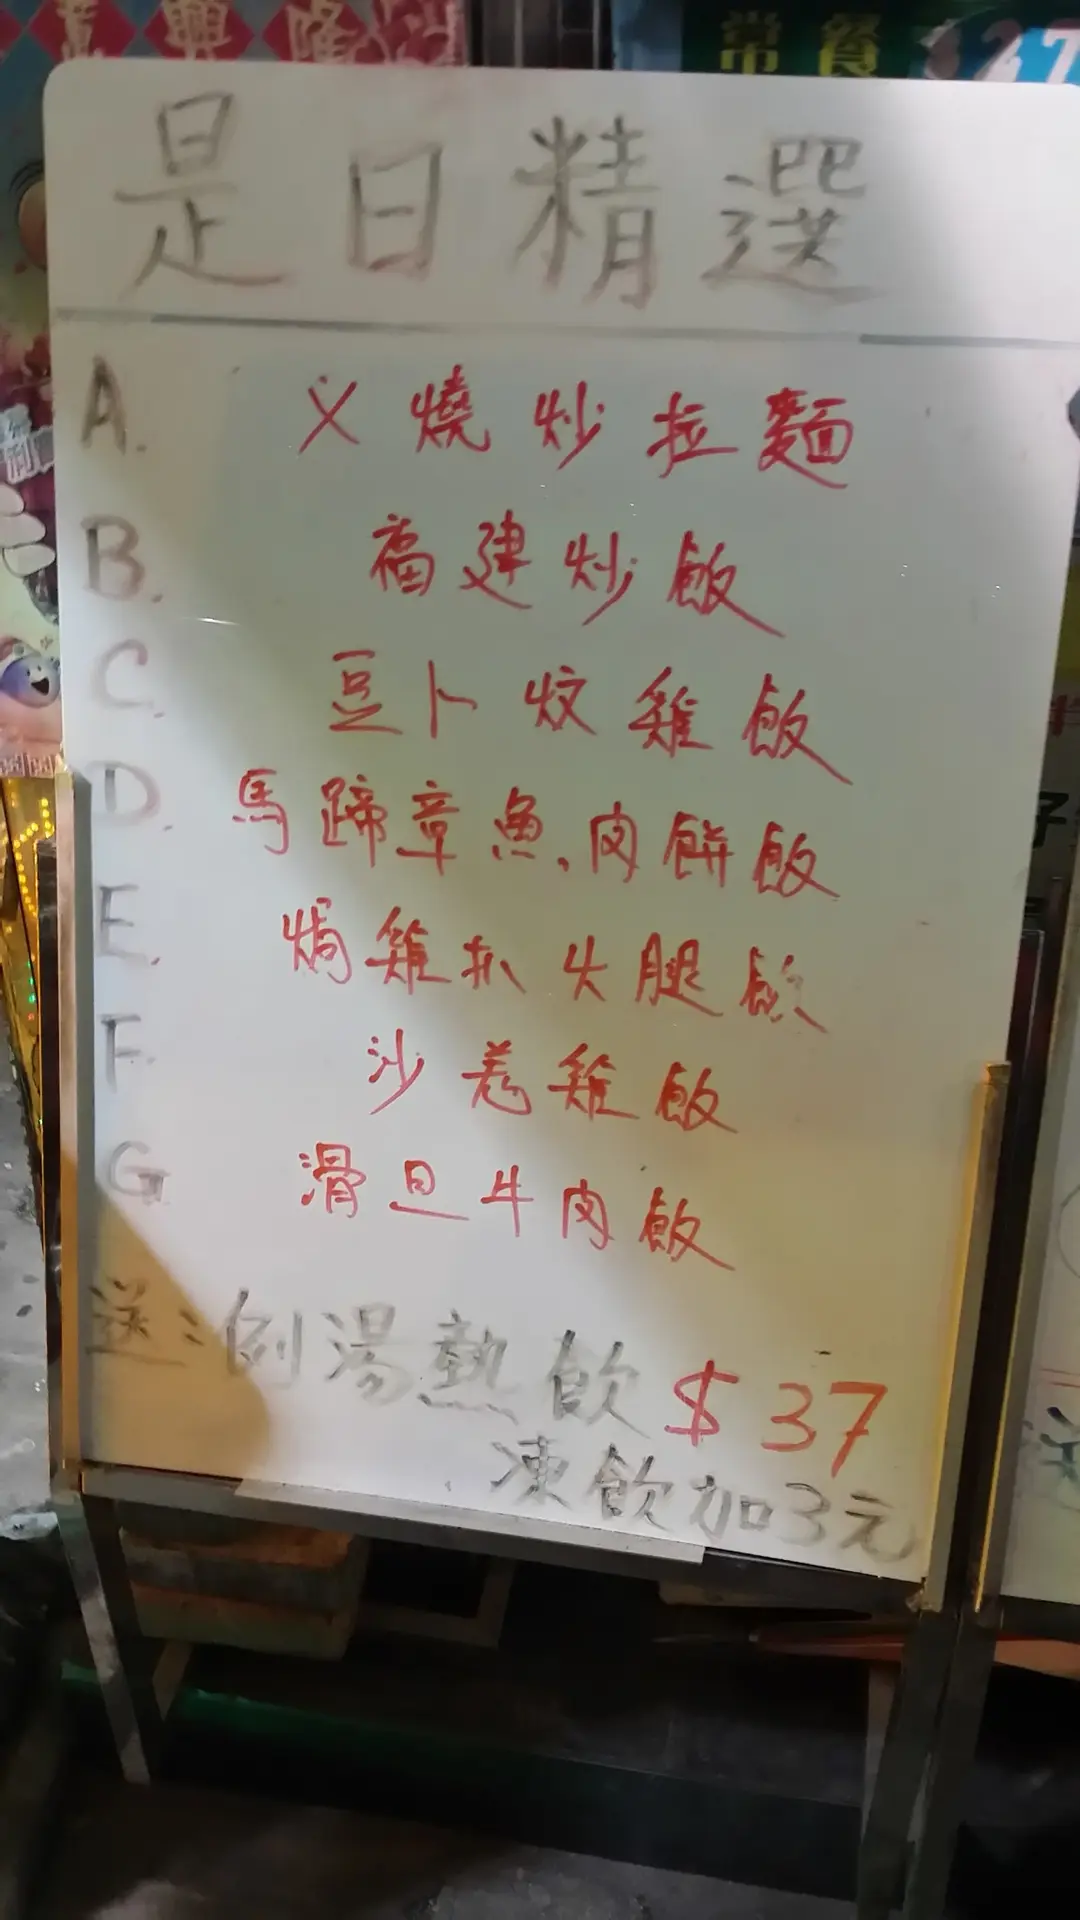 萬興隆
常餐
27
是日精選
A. 乂燒炒拉麵
B. 福建炒飯
C. 豆卜炆雞飯
D. 馬蹄章魚肉餅飯
E. 焗雞扒火腿飯
F. 沙羌雞飯
G. 滑旦牛肉飯
送:例湯熱飲 $37
凍飲加3元